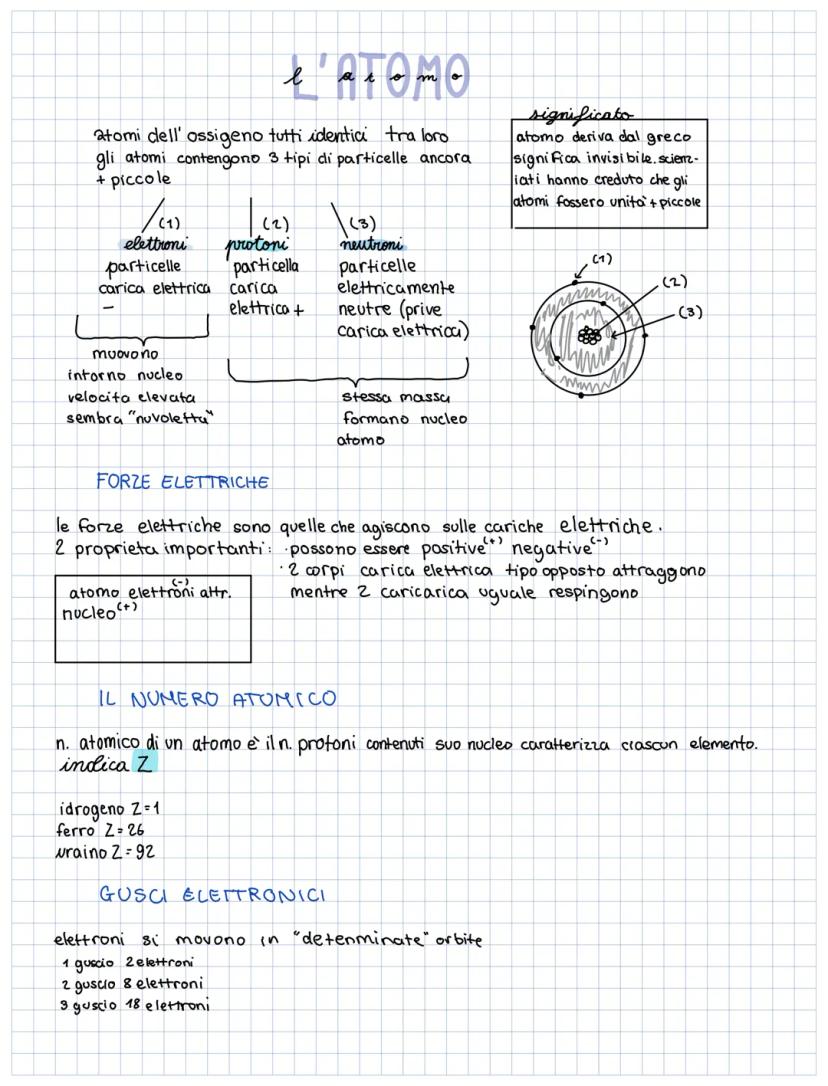 L'ATOMO
l atomo
atomi dell'ossigeno tutti identici tra loro
gli atomi contengono 3 tipi di particelle ancora
+ piccole
significato
atomo deriva dal greco
significa invisibile. scien-
iati hanno creduto che gli
atomi fossero unità + piccole
(1)
elettroni
particelle
carica elettrica
-
(2)
protoni
particella
carica
elettrica +
(3)
neutroni
particelle
elettricamente
neutre (prive
carica elettrica)
muovono
intorno nucleo
velocità elevata
sembra "nuvoletta"
stessa massa
formano nucleo
atomo
(1)
(2)
(3)
FORZE ELETTRICHE
le forze elettriche sono quelle che agiscono sulle cariche elettriche.
2 proprietà importanti: ·possono essere positive(+) negative(-)
·2 corpi carica elettrica tipo opposto attraggono
mentre 2 caricarica uguale respingono
atomo elettroni(-) attr.
nucleo(+)
IL NUMERO ATOMICO
n. atomico di un atomo è il n. protoni contenuti suo nucleo caratterizza ciascun elemento.
indica Z
idrogeno Z=1
ferro Z=26
uraino Z=92
GUSCI ELETTRONICI
elettroni si movono in "determinate" orbite
1 guscio 2 elettroni
2 guscio 8 elettroni
3 guscio 18 elettroni